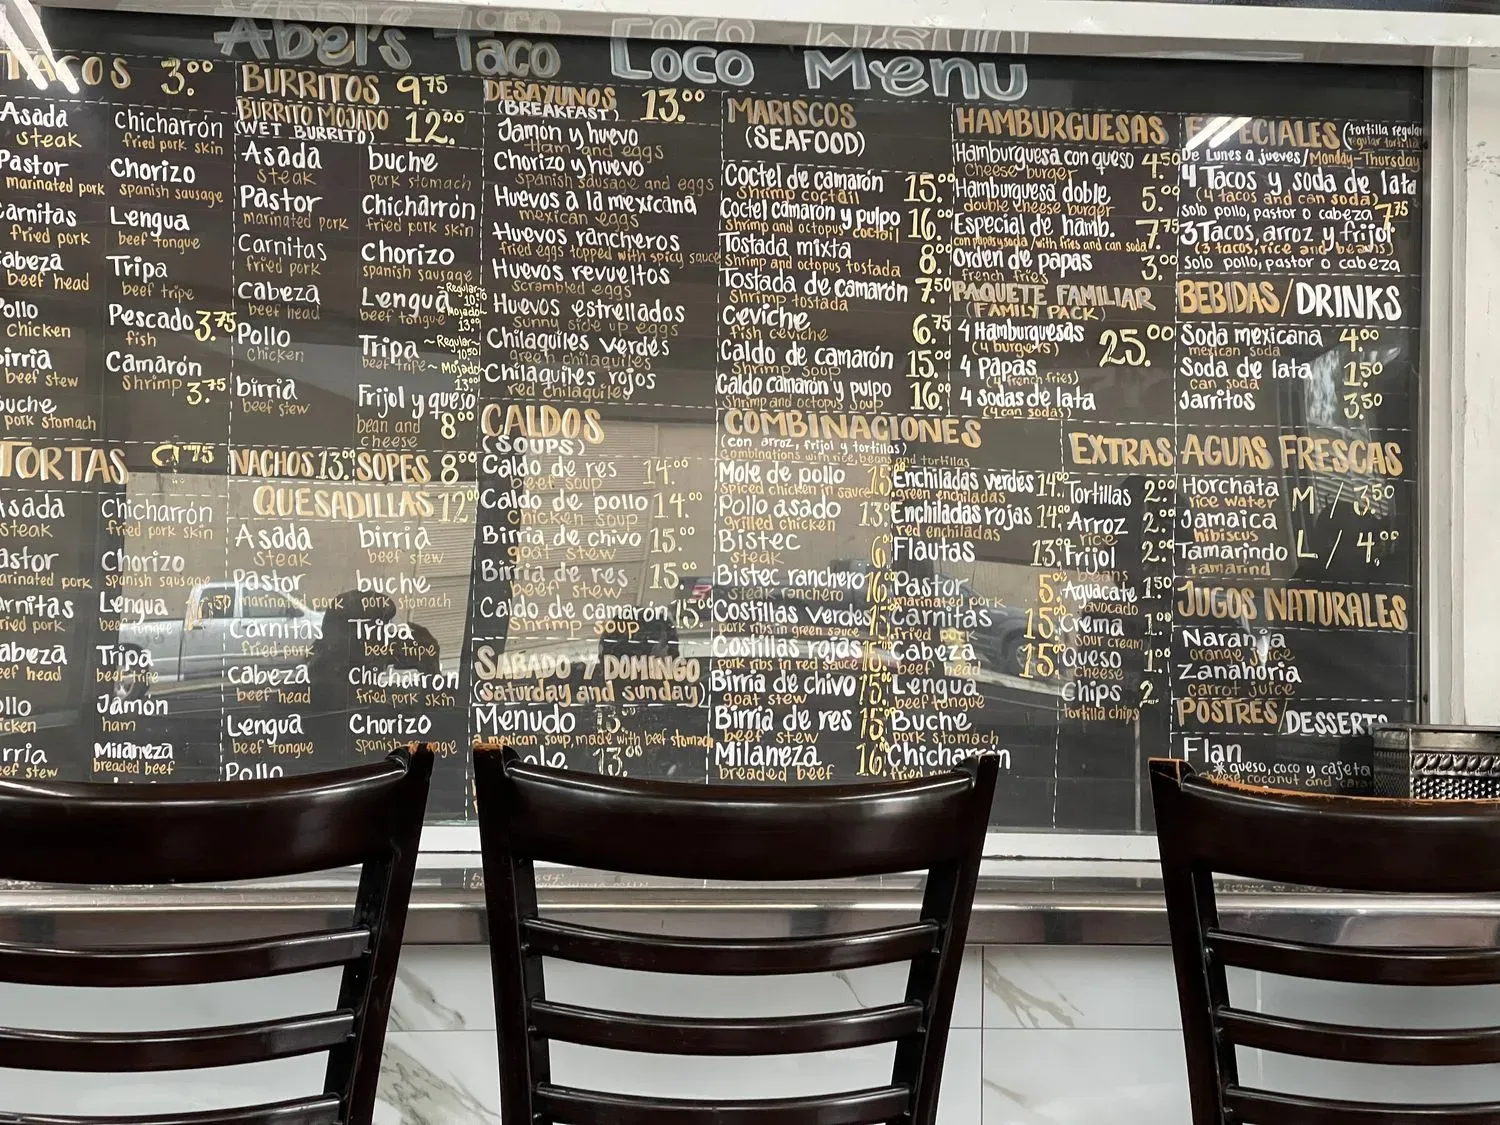 Abel's Taco Loco Menu
TACOS 3.00
Asada
steak
Pastor
marinated pork
Carnitas
fried pork
Cabeza
beef head
Pollo
chicken
Birria
beef stew
Buche
pork stomach
Chicharrón
fried pork skin
Chorizo
spanish sausage
Lengua
beef tongue
Tripa
beef tripe
Pescado 3.75
fish
Camarón
Shrimp 3.75
TORTAS
Asada
steak
Pastor
marinated pork
Carnitas
fried pork
Cabeza
beef head
Pollo
chicken
Birria
beef stew
Chicharrón
fried pork skin
Chorizo
spanish sausage
Lengua
beef tongue
Tripa
beef tripe
Jamón
ham
Milaneza
breaded beef
BURRITOS 9.75
BURRITO MOJADO 12.00
(WET BURRITO)
Asada
steak
Pastor
marinated pork
Carnitas
fried pork
Cabeza
beef head
Pollo
chicken
birria
beef stew
buche
pork stomach
Chicharrón
fried pork skin
Chorizo
spanish sausage
Lengua
beef tongue
Tripa ~Regular~
beef tripe ~Mojado
Frijol y queso
bean and 8.00
cheese
NACHOS 13.00
SOPES 8.00
QUESADILLAS 12.00
Asada
steak
Pastor
marinated pork
Carnitas
fried pork
Cabeza
beef head
Lengua
beef tongue
Pollo
birria
beef stew
buche
pork stomach
Tripa
beef tripe
Chicharrón
fried pork skin
Chorizo
spanish sausage
DESAYUNOS 13.00
(BREAKFAST)
Jamón y huevo
Ham and eggs
Chorizo y huevo
spanish sausage and eggs
Huevos a la mexicana
mexican eggs
Huevos rancheros
fried eggs topped with spicy sauce
Huevos revueltos
scrambled eggs
Huevos estrellados
Sunny side up eggs
Chilaquiles verdes
green chilaquiles
Chilaquiles rojos
red chilaquiles
CALDOS
(SOUPS)
Caldo de res 14.00
beef soup
Caldo de pollo 14.00
chicken soup
Birria de chivo 15.00
goat stew
Birria de res 15.00
beef stew
Caldo de camarón 15.00
Shrimp soup
SABADO Y DOMINGO
(Saturday and sunday)
Menudo 13.00
a mexican soup, made with beef stomach
13.00
MARISCOS
(SEAFOOD)
Coctel de camarón 15.00
Shrimp coctail
Coctel camarón y pulpo 16.00
Shrimp and octopus coctail
Tostada mixta 8.00
Shrimp and octopus tostada
Tostada de camarón 7.50
Shrimp tostada
Ceviche 6.75
fish ceviche
Caldo de camarón 15.00
Shrimp soup
Caldo camarón y pulpo 16.00
Shrimp and octopus soup
COMBINACIONES
(con arroz, frijol y tortillas)
Combinations with rice, beans and tortillas
Mole de pollo
spiced chicken in sauce
Pollo asado 13.
grilled chicken
Bistec
steak
Bistec ranchero 16.
steak ranchero
Costillas verdes 15.
pork ribs in green sauce
Costillas rojas 15.
pork ribs in red sauce
Birria de chivo 15.
goat stew
Birria de res 15.
beef stew
Milaneza 16.
breaded beef
Enchiladas verdes 14.00
green enchiladas
Enchiladas rojas 14.00
red enchiladas
Flautas 13.00
Pastor
marinated pork
Carnitas 15.
fried pork
Cabeza 15.
beef head
Lengua
beef tongue
Buche
pork stomach
Chicharrón
fried pork
HAMBURGUESAS
Hamburguesa con queso 4.50
Cheese burger
Hamburguesa doble 5.00
double cheese burger
Especial de hamb. 7.75
con papas y soda / with fries and can soda
Orden de papas 3.00
french fries
PAQUETE FAMILIAR
(FAMILY PACK)
4 Hamburguesas 25.00
(4 burgers)
4 Papas
(4 french fries)
4 Sodas de lata
(4 can sodas)
EXTRAS
Tortillas 2.00
Arroz 2.00
rice
Frijol 2.00
beans
Aguacate 1.50
avocado
Crema 1.00
sour cream
Queso 1.00
cheese
Chips 2.
tortilla chips
ESPECIALES (tortilla regular
regular tortilla
De Lunes a jueves / Monday-Thursday
4 Tacos y soda de lata
(4 tacos and can soda)
solo pollo, pastor o cabeza 7.75
3 Tacos, arroz y frijol
(3 tacos, rice and beans)
solo pollo, pastor o cabeza
BEBIDAS/DRINKS
Soda mexicana 4.00
mexican soda
Soda de lata 1.50
can soda
Jarritos 3.50
AGUAS FRESCAS
Horchata
rice water
Jamaica
hibiscus
Tamarindo
tamarind
M / 3.50
L / 4.00
JUGOS NATURALES
Naranja
orange juice
Zanahoria
carrot juice
POSTRES/DESSERTS
Flan
*queso, coco y cajeta
cheese, coconut and